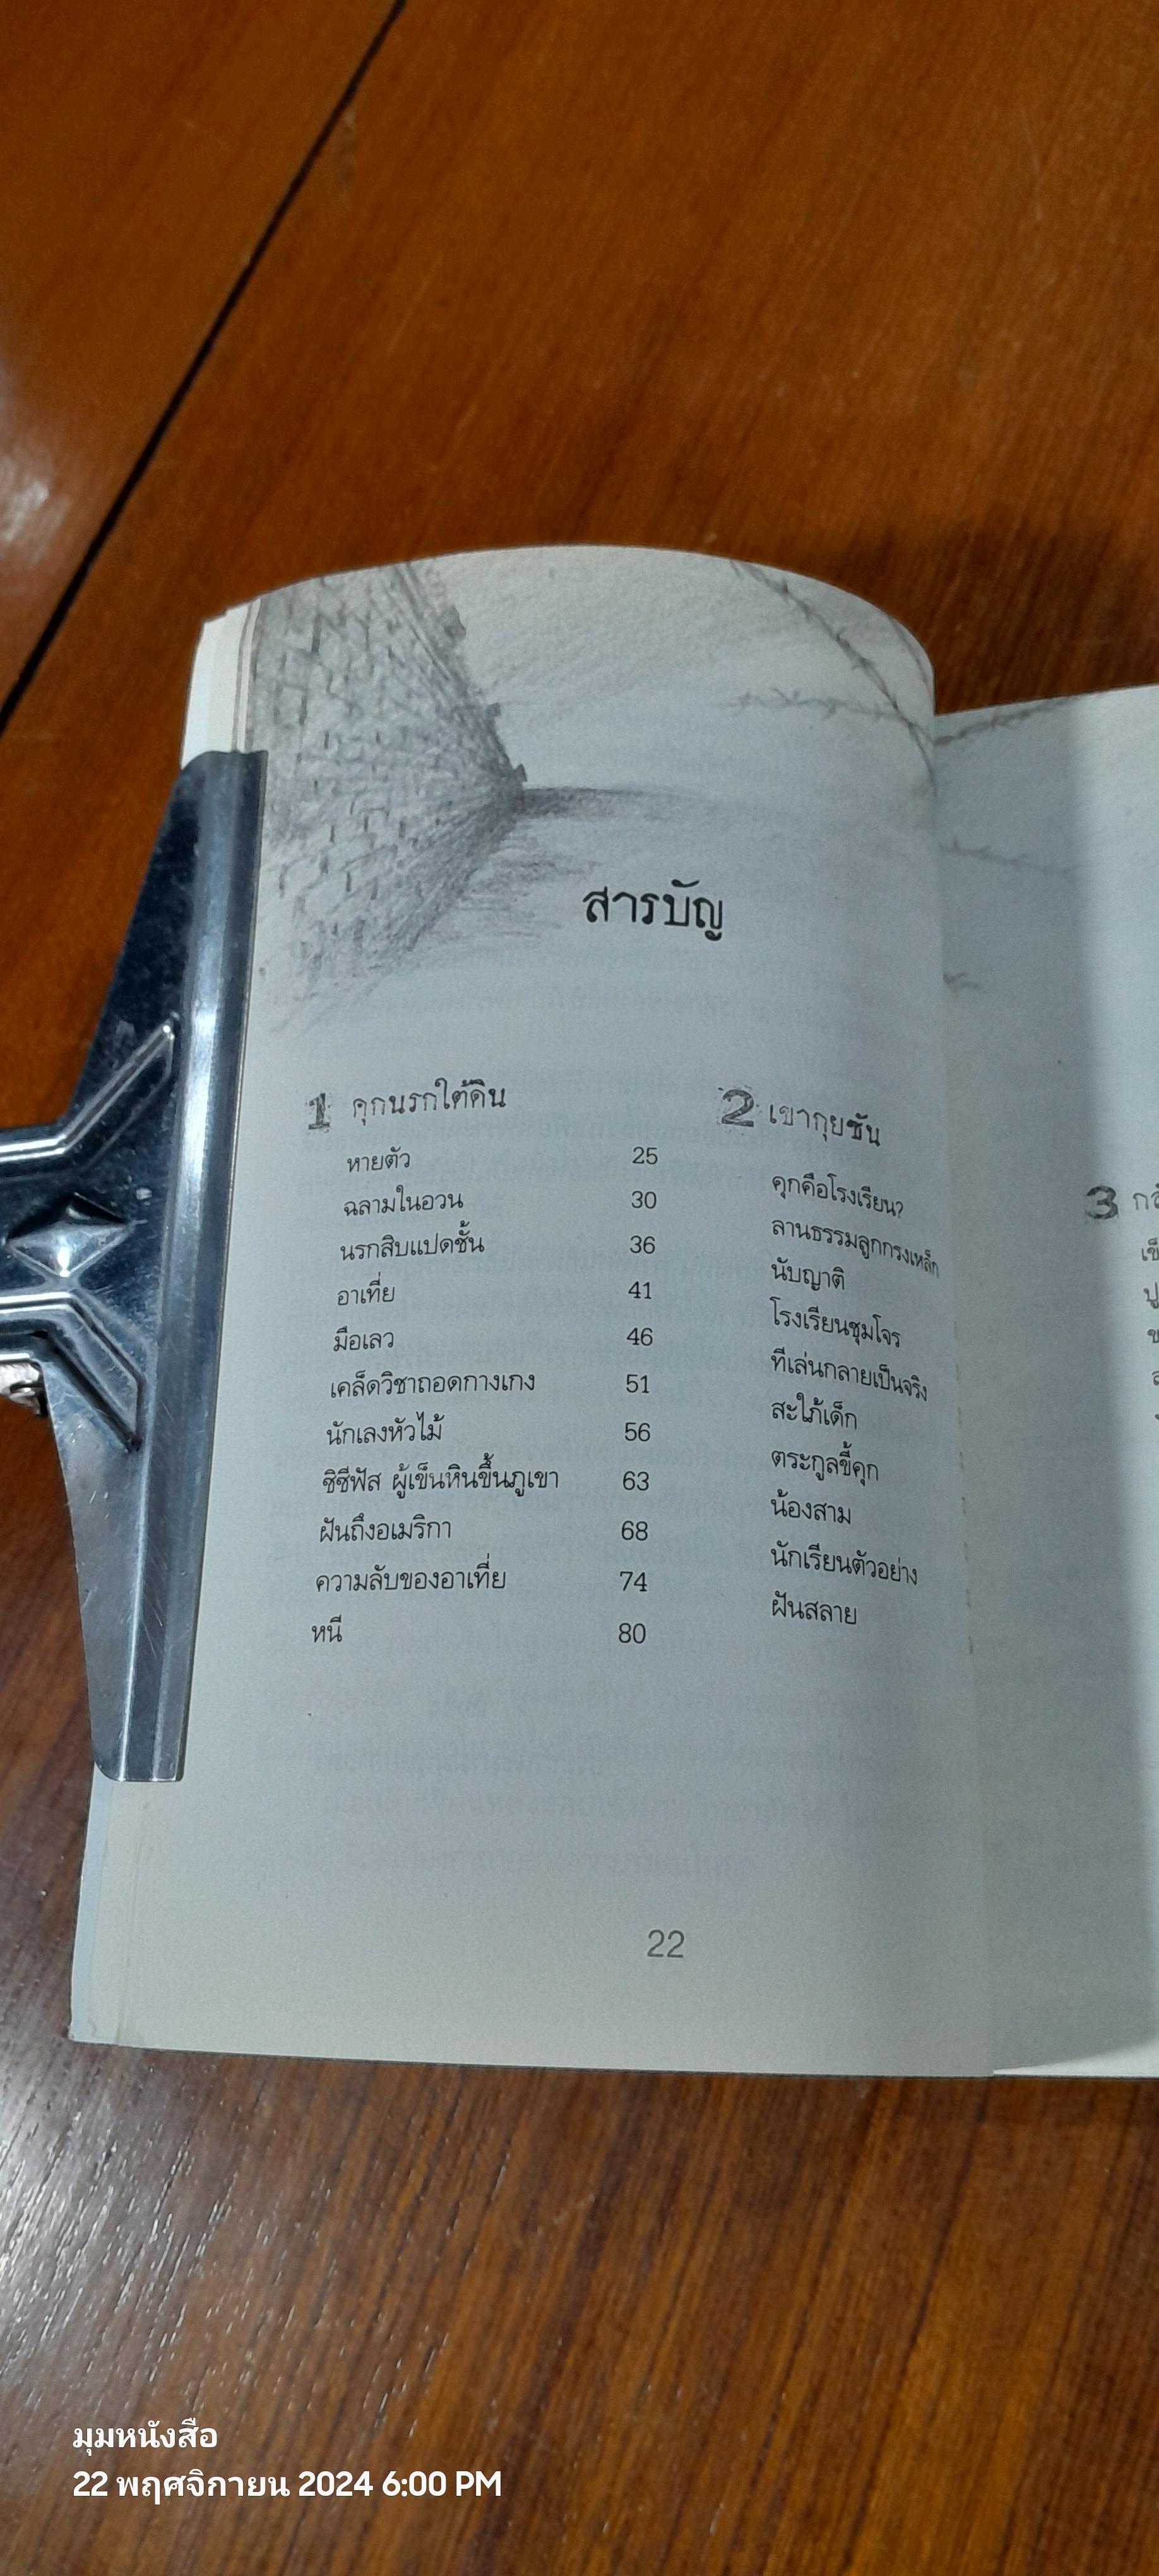 สารบัญ
1 คุกนรกใต้ดิน
หายตัว 25
ฉลามในอวน 30
นรกสิบแปดชั้น 36
อาเที่ย 41
มือเลว 46
เคล็ดวิชาถอดกางเกง 51
นักเลงหัวไม้ 56
ซิซีฟัส ผู้เข็นหินขึ้นภูเขา 63
ฝันถึงอเมริกา 68
ความลับของอาเที่ย 74
หนี 80
2 เขากุยซัน
คุกคือโรงเรียน?
ลานธรรมลูกกรงเหล็ก
นับญาติ
โรงเรียนชุมโจร
ทีเล่นกลายเป็นจริง
สะใภ้เด็ก
ตระกูลขี้คุก
น้องสาม
นักเรียนตัวอย่าง
ฝันสลาย
3
22
มุมหนังสือ
22 พฤศจิกายน 2024 6:00 PM